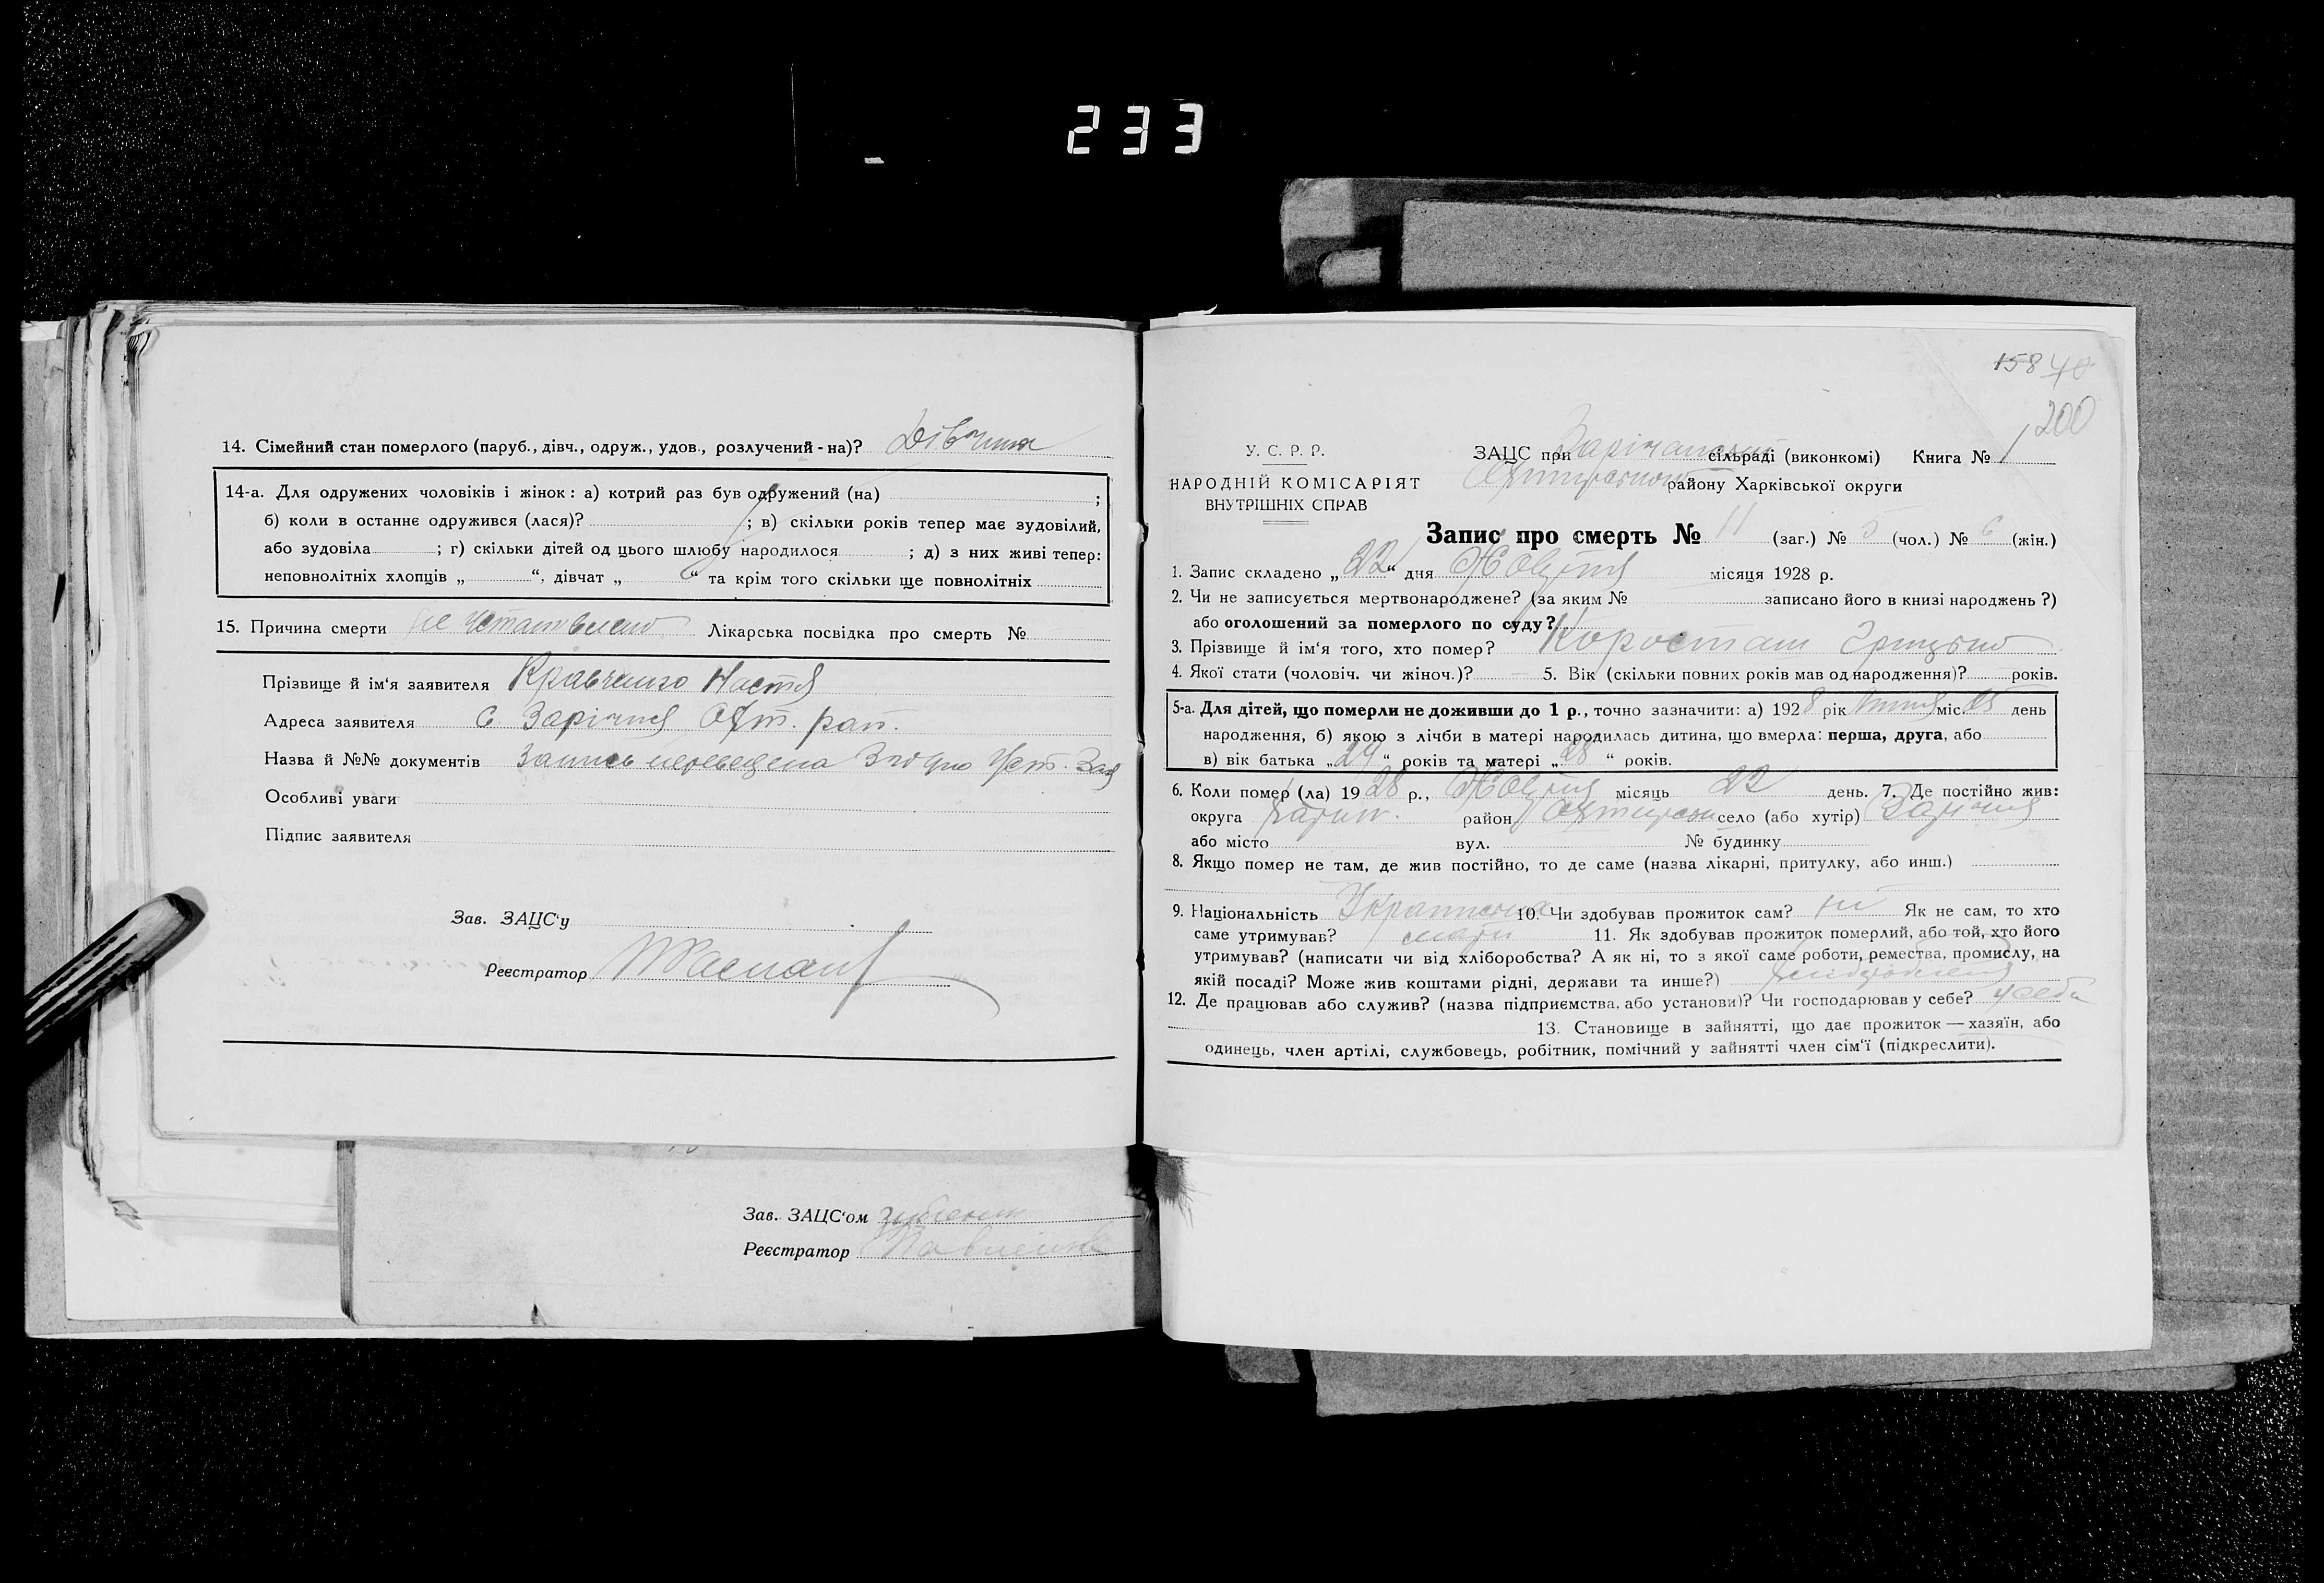 233
14. Сімейний стан померлого (паруб., дівч., одруж., удов., розлучений - на)? Дівчина
14-а. Для одружених чоловіків і жінок: а) котрий раз був одружений (на) ;
б) коли в останнє одружився (лася)? ; в) скільки років тепер має зудовілий,
або зудовіла ; г) скільки дітей од цього шлюбу народилося ; д) з них живі тепер:
неповнолітніх хлопців „ “, дівчат „ “ та крім того скільки ще повнолітніх
15. Причина смерти не установлено Лікарська посвідка про смерть №
Прізвище й ім'я заявителя Кравченко Настя
Адреса заявителя с Зарічня Охт. рай.
Назва й №№ документів Запись переведена Згідно Уст. Зая
Особливі уваги
Підпис заявителя
Зав. ЗАЦС'у
Реєстратор
Зав. ЗАЦС'ом
Реєстратор
15840
200
У. С. Р. Р.
НАРОДНІЙ КОМІСАРІЯТ
ВНУТРІШНІХ СПРАВ
ЗАЦС при Зарічанский сільраді (виконкомі) Книга № 1
району Харківської округи
Запис про смерть № 11 (заг.) № 5 (чол.) № 6 (жін.)
1. Запис складено „22“ дня Жовтня місяця 1928 р.
2. Чи не записується мертвонароджене? (за яким № записано його в книзі народжень?)
або оголошений за померлого по суду?
3. Прізвище й ім'я того, хто помер? Коросташ
4. Якої стати (чоловіч. чи жіноч.)? 5. Вік (скільки повних років мав од народження)? років.
5-а. Для дітей, що померли не доживши до 1 р., точно зазначити: а) 1928 рік міс. 15 день
народження, б) якою з лічби в матері народилась дитина, що вмерла: перша, друга, або
в) вік батька „29“ років та матері „28“ років.
6. Коли помер (ла) 1928 р., Жовтня місяць 22 день. 7. Де постійно жив:
округа Харків. район село (або хутір) Зарічня
або місто вул. № будинку
8. Якщо помер не там, де жив постійно, то де саме (назва лікарні, притулку, або инш.)
9. Національність 10. Чи здобував прожиток сам? ні Як не сам, то хто
саме утримував? 11. Як здобував прожиток померлий, або той, хто його
утримував? (написати чи від хліборобства? А як ні, то з якої саме роботи, ремества, промислу, на
якій посаді? Може жив коштами рідні, держави та инше?)
12. Де працював або служив? (назва підприємства, або установи)? Чи господарював у себе? у себе
13. Становище в зайнятті, що дає прожиток — хазяїн, або
одинець, член артілі, службовець, робітник, помічний у зайнятті член сім'ї (підкреслити).